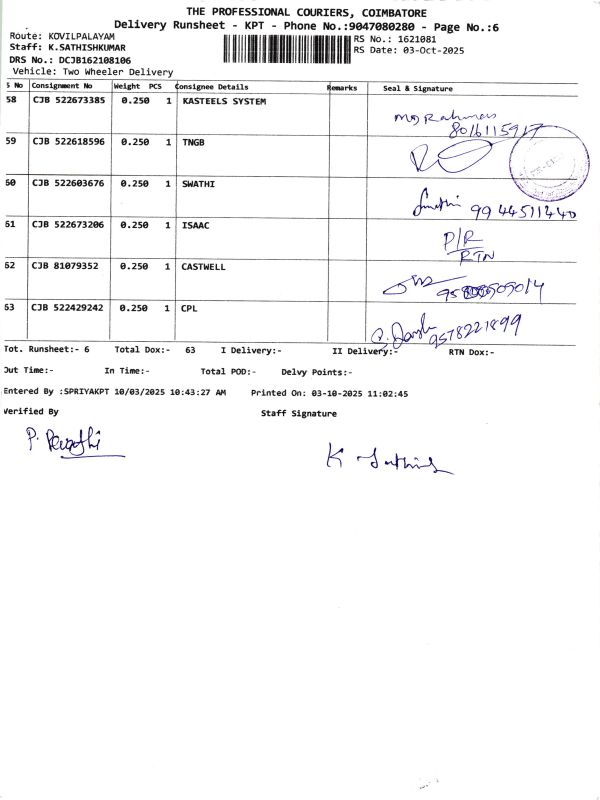 THE PROFESSIONAL COURIERS, COIMBATORE
Delivery Runsheet - KPT - Phone No.:9047080280 - Page No.:6
Route: KOVILPALAYAM
RS No.: 1621081
Staff: K.SATHISHKUMAR
RS Date: 03-Oct-2025
DRS No.: DCJB162108106
Vehicle: Two Wheeler Delivery
S No Consignment No Weight PCS Consignee Details Remarks Seal & Signature
58 CJB 522673385 0.250 1 KASTEELS SYSTEM
Rahman
8016115917
59 CJB 522618596 0.250 1 TNGB
60 CJB 522603676 0.250 1 SWATHI
Swathi 9944511440
61 CJB 522673206 0.250 1 ISAAC
P/R
RTN
62 CJB 81079352 0.250 1 CASTWELL
63 CJB 522429242 0.250 1 CPL
9578221899
Tot. Runsheet:- 6 Total Dox:- 63 I Delivery:- II Delivery:- RTN Dox:-
Out Time:- In Time:- Total POD:- Delvy Points:-
Entered By :SPRIYAKPT 10/03/2025 10:43:27 AM Printed On: 03-10-2025 11:02:45
Verified By Staff Signature